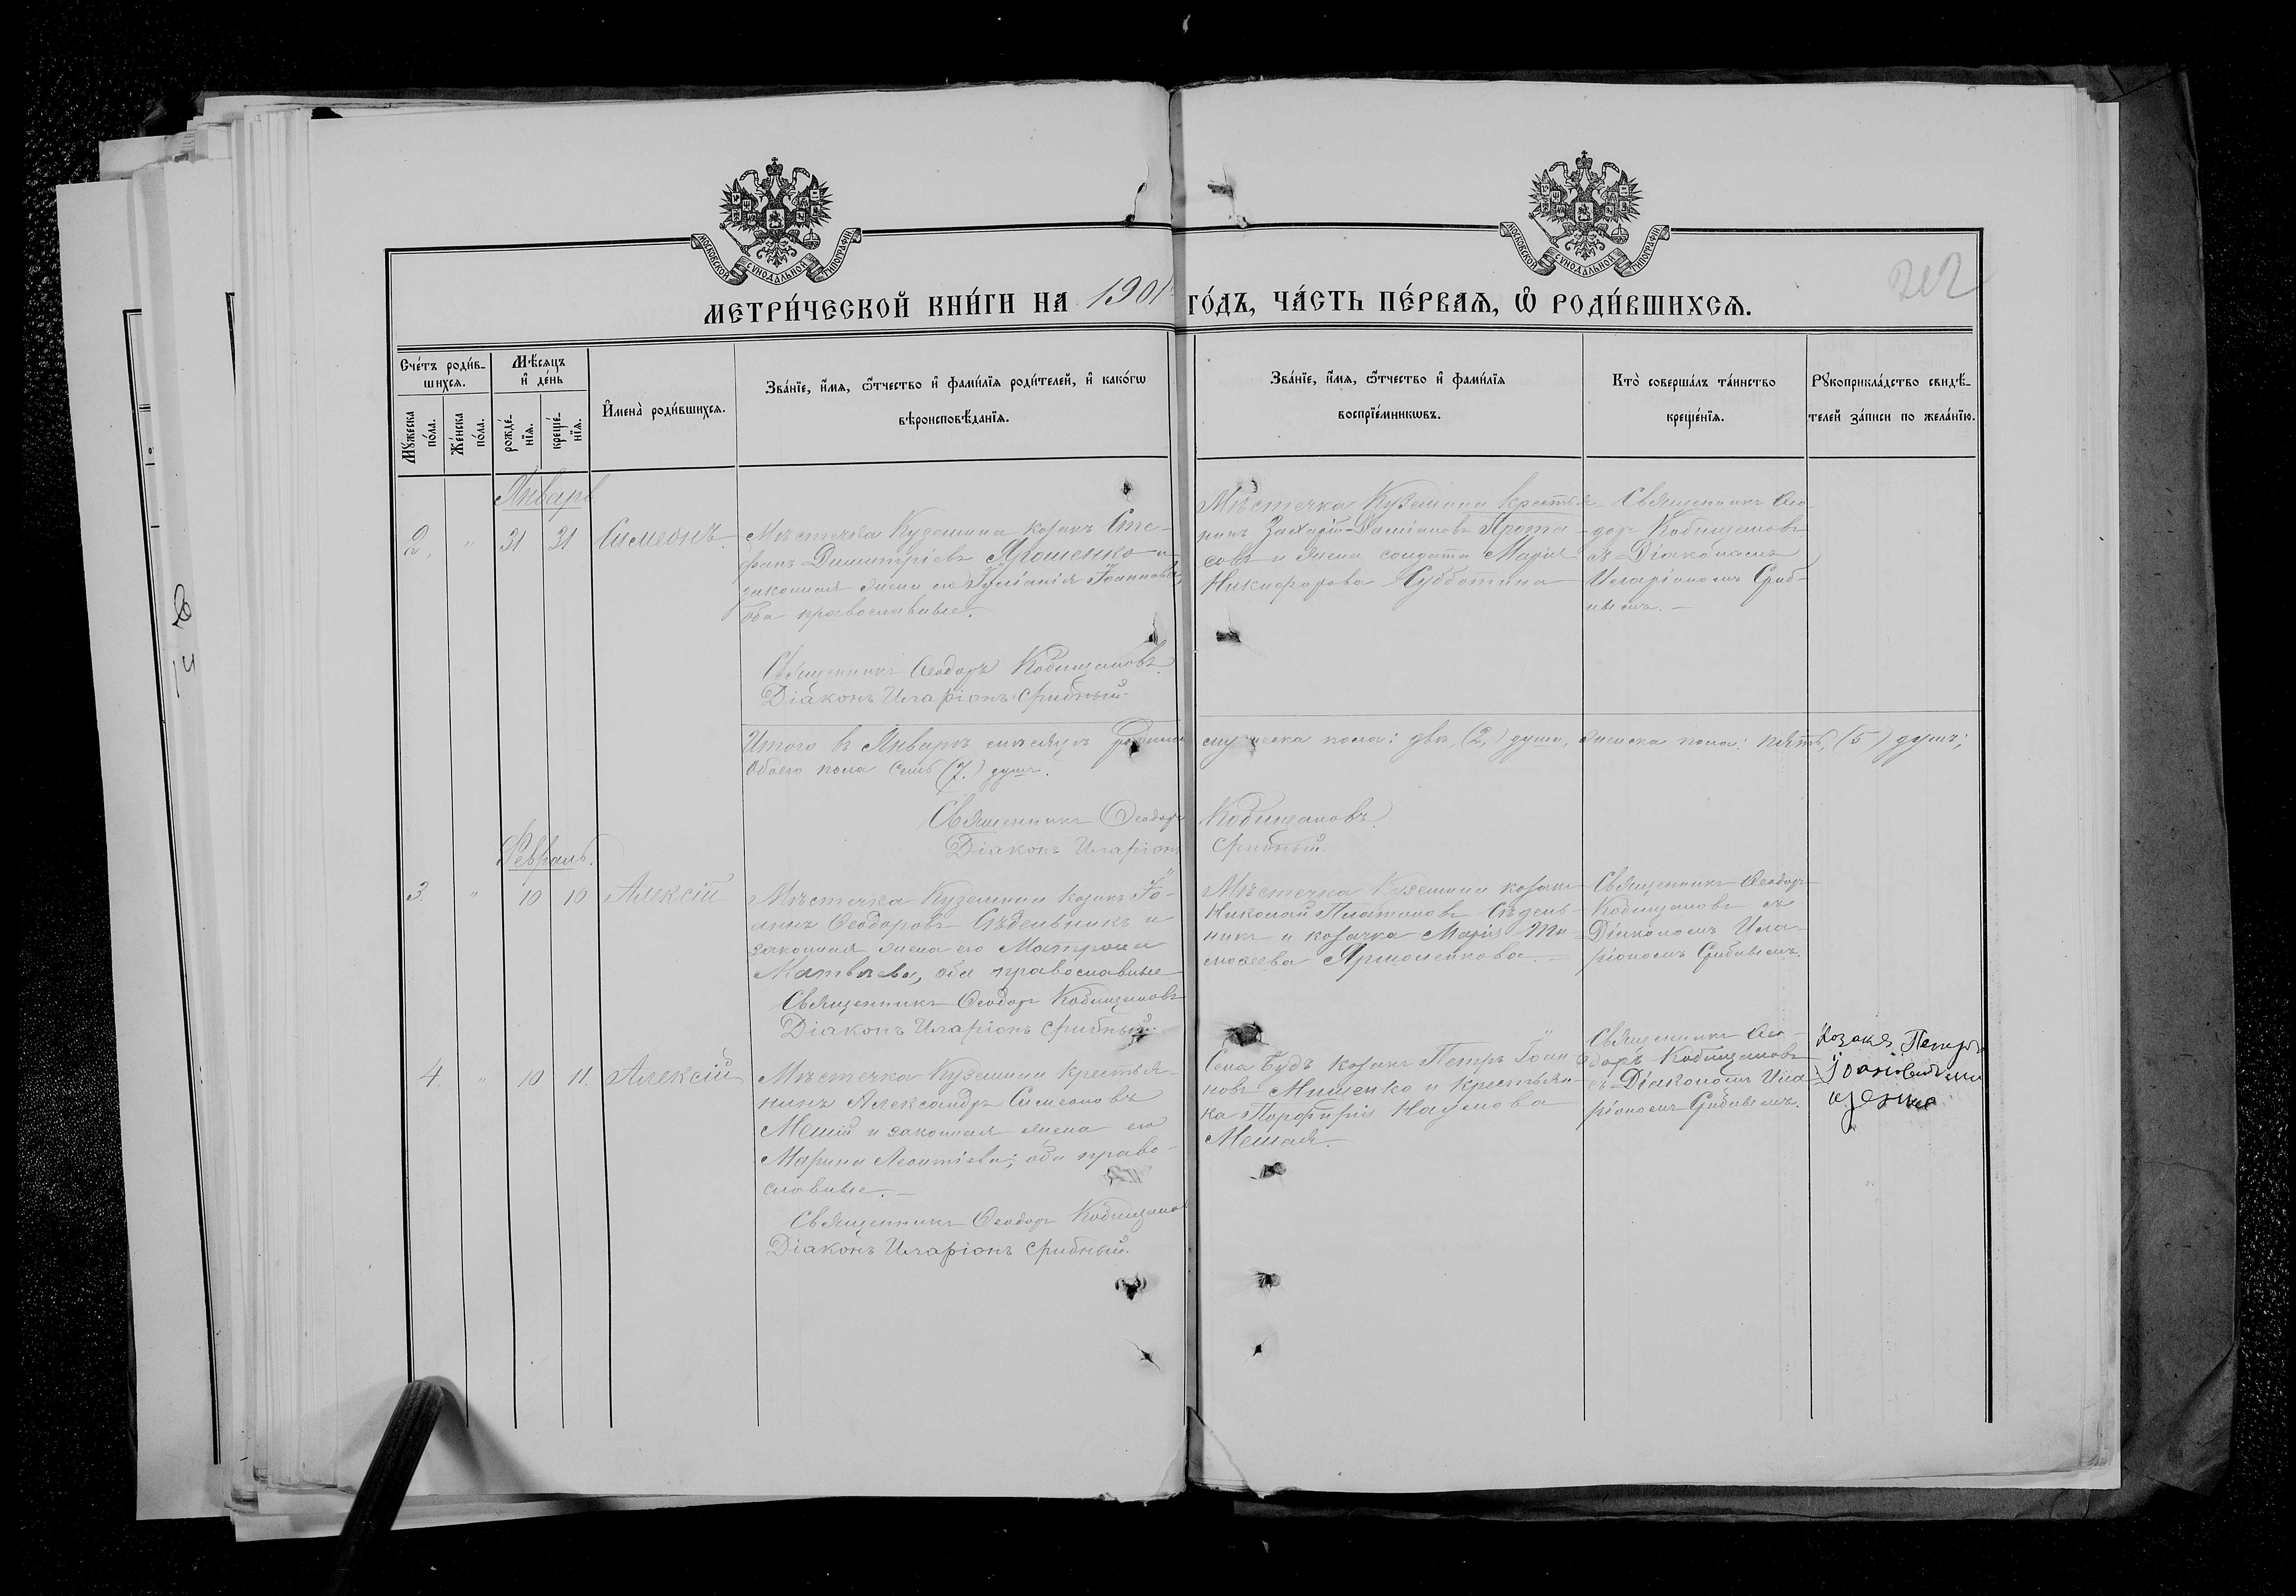 МОСКОВСКОЙ СѴНОДАЛЬНОЙ ТИПОГРАФІИ
МОСКОВСКОЙ СѴНОДАЛЬНОЙ ТИПОГРАФІИ
212
МЕТРИ́ЧЕСКОЙ КНИ́ГИ НА 1901 ГО́ДЪ, ЧА́СТЬ ПЕ́РВАѦ, Ѡ҆ РОДИ́ВШИХСѦ.
Сче́тъ роди́в-
шихсѧ.
Мꙋжеска
по́ла.
Же́нска
по́ла.
Мѣ́сѧцъ
и҆ де́нь
рожде́-
нїѧ.
креще́-
нїѧ.
И҆мена̀ роди́вшихсѧ.
Зва́нїе, и҆́мѧ, ѻ҆́тчество и҆ фами́лїѧ роди́телей, и҆ како́гѡ
вѣроисповѣ́данїѧ.
Зва́нїе, и҆́мѧ, ѻ҆́тчество и҆ фами́лїѧ
воспрїе́мникѡвъ.
Кто̀ соверша́лъ та́инство
креще́нїѧ.
Рꙋкоприкла́дство свидѣ́-
телей за́писи по жела́нїю.
Январь
2. " 31 31 Симеонъ.
Мѣстечка Куземина козакъ Сте-
фанъ Димитріевъ Ярошенко и
законная жена его Іуліанія Іоаннова,
оба православные.
Священникъ Ѳеодоръ Кобищановъ.
Діаконъ Иларіонъ Срибный.
Мѣстечка Куземина крестья-
нинъ Захарій Даміановъ Прота-
совъ и жена солдата Марія
Никифорова Субботина
Священникъ Ѳео-
доръ Кобищановъ
съ Діакономъ
Иларіономъ Сриб-
нымъ.
Итого въ Январѣ мѣсяцѣ родилось мужеска пола: двѣ, (2,) души, женска пола: пять, (5) душъ;
Обоего пола семь (7.) душъ.
Священникъ Ѳеодоръ Кобищановъ.
Діаконъ Иларіонъ Срибный
Февраль.
3. " 10 10 Алексій
Мѣстечка Куземина козакъ Іо-
аннъ Ѳеодоровъ Сѣдельникъ и
законная жена его Матрона
Матвѣева, оба православные
Священникъ Ѳеодоръ Кобищановъ
Діаконъ Иларіонъ Срибный.
Мѣстечка Куземина козакъ
Николай Платоновъ Сѣдель-
никъ и козачка Марія Ти-
моѳеева Ярмоленкова.
Священникъ Ѳеодоръ
Кобищановъ съ
Діакономъ Ила-
ріономъ Срибнымъ.
4. " 10 11. Алексій
Мѣстечка Куземина крестья-
нинъ Александръ Симеоновъ
Мешій и законная жена его
Марина Леонтіева; оба право-
славные.
Священникъ Ѳеодоръ Кобищановъ
Діаконъ Иларіонъ Срибный.
Села Будъ козакъ Петръ Іоан-
новъ Мищенко и крестьян-
ка Порфирія Наумова
Мешая.
Священникъ Ѳео-
доръ Кобищановъ
съ Діакономъ Ила-
ріономъ Срибнымъ.
Козакъ Петръ
Іоановъ ми
щенко